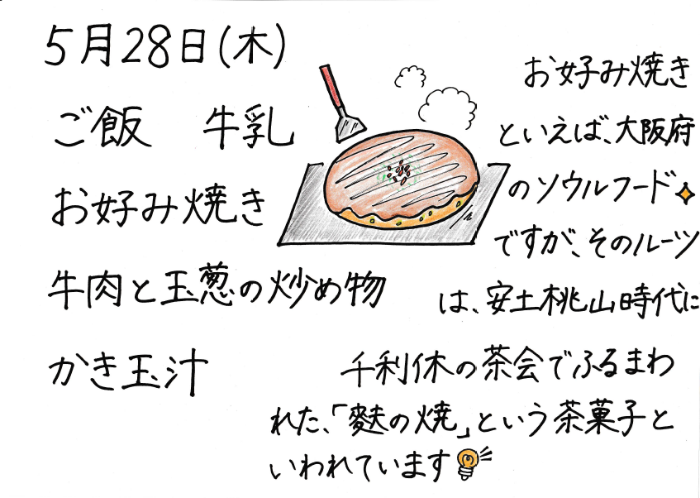 5月28日(木)
ご飯 牛乳
お好み焼き
牛肉と玉葱の炒め物
かき玉汁
お好み焼き
といえば、大阪府
のソウルフード
ですが、そのルーツ
は、安土桃山時代に
千利休の茶会でふるまわ
れた、「麩の焼」という茶菓子と
いわれています